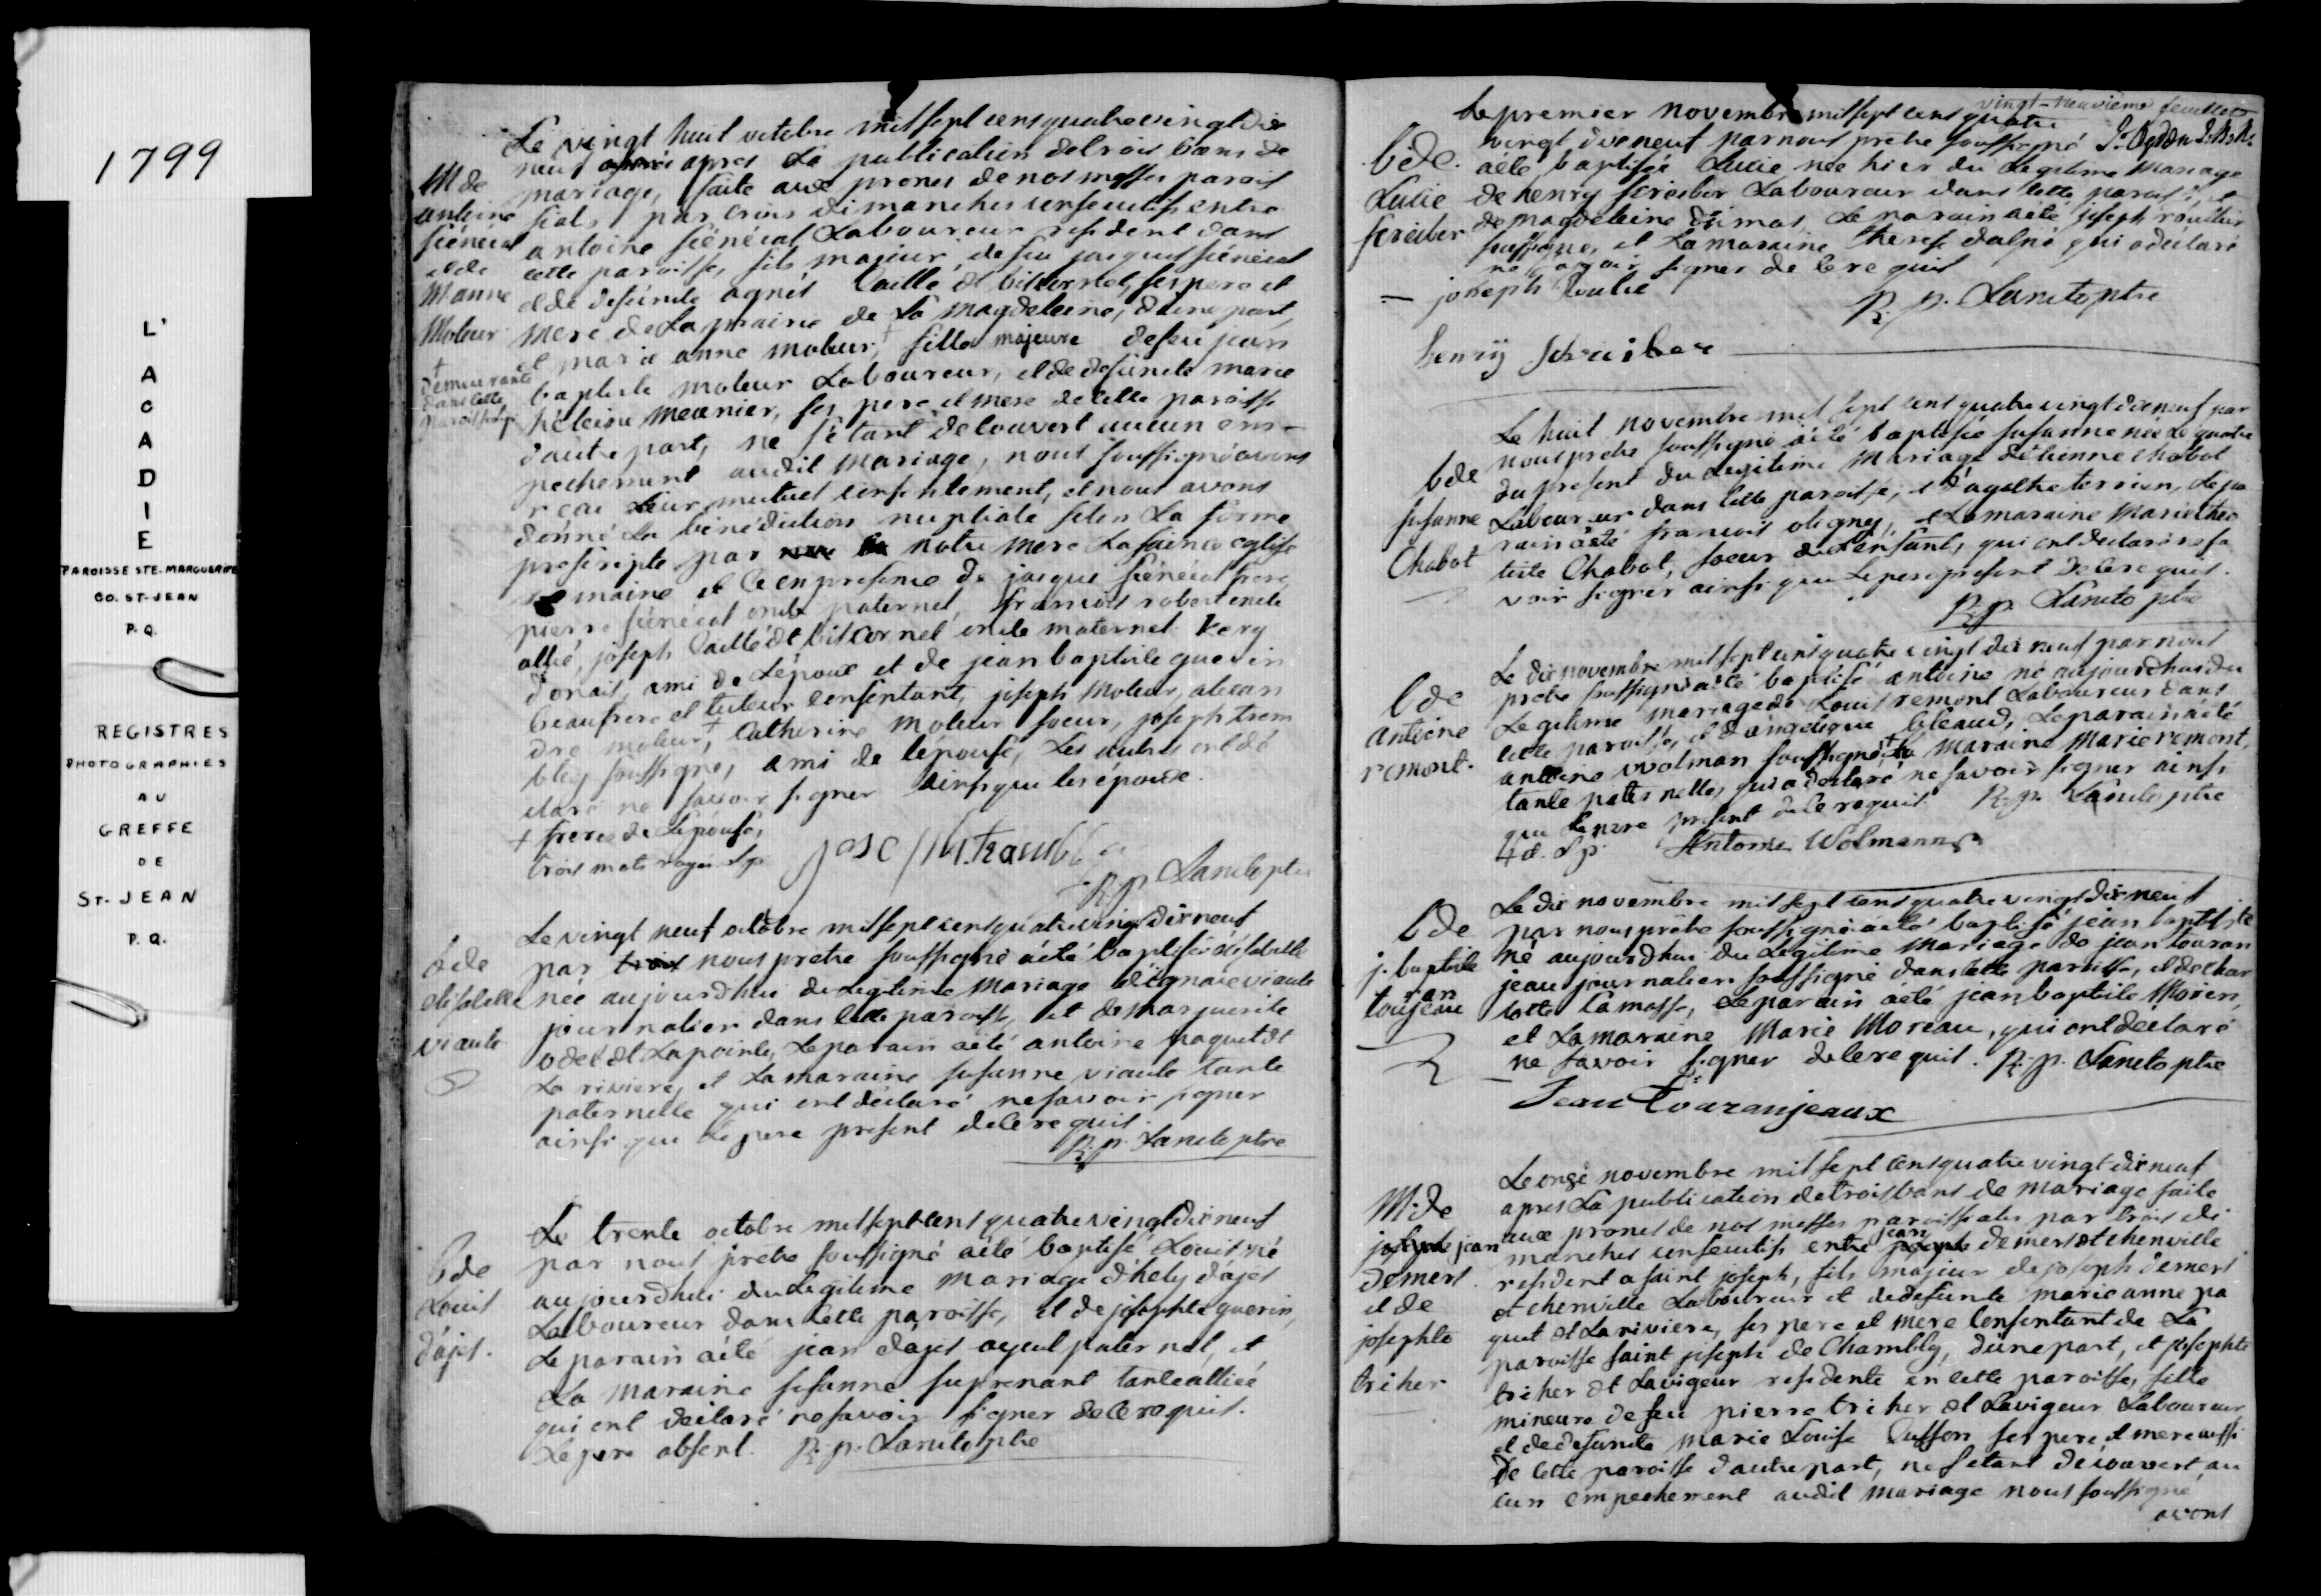 1799
L'
A
C
A
D
I
E
PAROISSE STE-MARGUERITE
CO. ST-JEAN
P.Q.
REGISTRES
PHOTOGRAPHIES
AU
GREFFE
DE
ST-JEAN
P.Q.
M de
antoine
siénécal
et de
M anne
Moleur
+
demeurante
dans cette
paroisse
Le vingt huit octobre mil sept cens quatre vingt dix
neuf après La publication de trois bans de
mariage, faite aux prones de nos messes parois
siales par trois dimanches consecutifs entre
antoine siénécal Laboureur resident dans
cette paroisse, fils majeur, de feu jacques siénécal
et de defeunte agnés Caillé dt biscornet, ses pere et
mere de La prairie de La magdeleine, d'une part,
et marie anne moleur,+ fille majeure de feu jean
baptiste moleur Laboureur, et de defeunte marie
héleine meunier, ses pere et mere de cette paroisse
d'autre part, ne s'étant découvert aucun em-
pechement audit mariage, nous soussigné avons
reçu Leur mutuel consentement, et nous avons
donné La bénédiction nuptiale selon La forme
prescripte par notre mere La sainte eglise
romaine et ce en presence de jacque siénécal frere,
pierre siénécal oncle paternel, françois robert oncle
allié, joseph Caillé dt biscornet oncle maternel
d'onait, ami de L'époux et de jean baptiste guerin
beaufrere et tuteur consentant, joseph Moleur, alexan
dre moleur,+ Catherine Moleur soeur, joseph trem
bley soussigné, ami de l'épouse, Les autres ont dé
claré ne savoir signer ainsi que les époux.
+ freres de L'épouse,
trois mots rayés Lp.
R. p. Lancto ptre
b de
elisabelle
viaule
Le vingt neuf octobre mil sept cens quatre vingt dix neuf
par nous pretre soussigné a été baptisée élisabelle
née aujourdhui du Legitime Mariage d'ignace viaule
journalier dans cette paroisse, et de marguerite
odet dt Lapointe, Le parain a été antoine paquet dt
La riviere, et La maraine susanne viaule tante
paternelle qui ont déclaré ne savoir signer
ainsi que Le pere present de ce requis.
R. p. Lancto ptre
b de
Louis
d'ajes.
Le trente octobre mil sept cens quatre vingt dix neuf
par nous pretre soussigné a été baptisé Louis né
aujourdhui du Legitime Mariage d'hely d'ajes
Laboureur dans cette paroisse, et de josephte guerin,
Le parain a été jean d'ajes ayeul paternel, et
La maraine susanne suprenant tante alliée
qui ont déclaré ne savoir signer de ce requis.
Le pere absent. R. p. Lancto ptre
vingt-neuvieme feuillet
b de
Lucie
screiber
Le premier novembre mil sept cens quatre
vingt dix neuf par nous pretre soussigné
a été baptisée Lucie née hier du Legitime Mariage
de henry screiber Laboureur dans cette paroisse, et
de magdeleine dimas, Le parain a été joseph roulier
soussigné, et La maraine therese dalpé qui a déclaré
ne savoir signer de ce requis
joseph Roulié
R. p. Lancto ptre
henrÿ Schreiber
b de
susanne
Chabot
Le huit novembre mil sept cens quatre vingt dix neuf par
nous pretre soussigné a été baptisée susanne née Le quatre
du present du Legitime Mariage d'étienne Chabot
Laboureur dans cette paroisse, et d'agathe terrien, Le pa
rain a été francois oligny, et La maraine Marie theo
tiste Chabot, soeur de L'enfant, qui ont déclaré ne sa
voir signer ainsi que Le pere present de ce requis.
R. p. Lancto ptre
b de
antoine
remont.
Le dix novembre mil sept cens quatre vingt dix neuf par nous
pretre soussigné a été baptisé antoine né aujourdhui du
Legitime mariage de Louis remont Laboureur dans
cette paroisse, et d'angelique bleaud, Le parain a été
antoine wolman soussigné,+ La maraine Marie remont,
tante paternelle, qui a déclaré ne savoir signer ainsi
que Le pere present de ce requis. R. p. Lancto ptre
+ et. Lp. Antoine Wolmann
b de
j. baptiste
touranjeau
Le dix novembre mil sept cens quatre vingt dix neuf
par nous prêtre soussigné a été baptisé jean baptiste
né aujourdhui du Légitime Mariage de jean touran
jeau journalier soussigné dans cette paroisse, et de char
lotte Lamosse, Le parain a été jean baptiste Morin,
et La maraine Marie Moreau, qui ont déclaré
ne savoir signer de ce requis. R. p. Lancto ptre
Jean Touranjeaux
M: de
joseph jean
demers
et de
josephte
tricher
Le onze novembre mil sept cens quatre vingt dix neuf
apres La publication de trois bans de mariage faite
aux prones de nos messes paroissiales par trois di
manches consecutifs entre jean demers dt chenville
resident a saint joseph, fils majeur de joseph demers
dt chenville Laboureur et de defeunte marie anne pa
quet dt La riviere, ses pere et mere consentant de La
paroisse saint joseph de Chambly, d'une part, et josephte
tricher dt Lavigeur residente en cette paroisse, fille
mineure de feu pierre tricher dt Lavigeur Laboureur
et de defeunte marie Louise Cusson ses pere et mere aussi
de cette paroisse d'autre part, ne s'étant découvert au
cun empechement audit mariage nous soussigné
avons